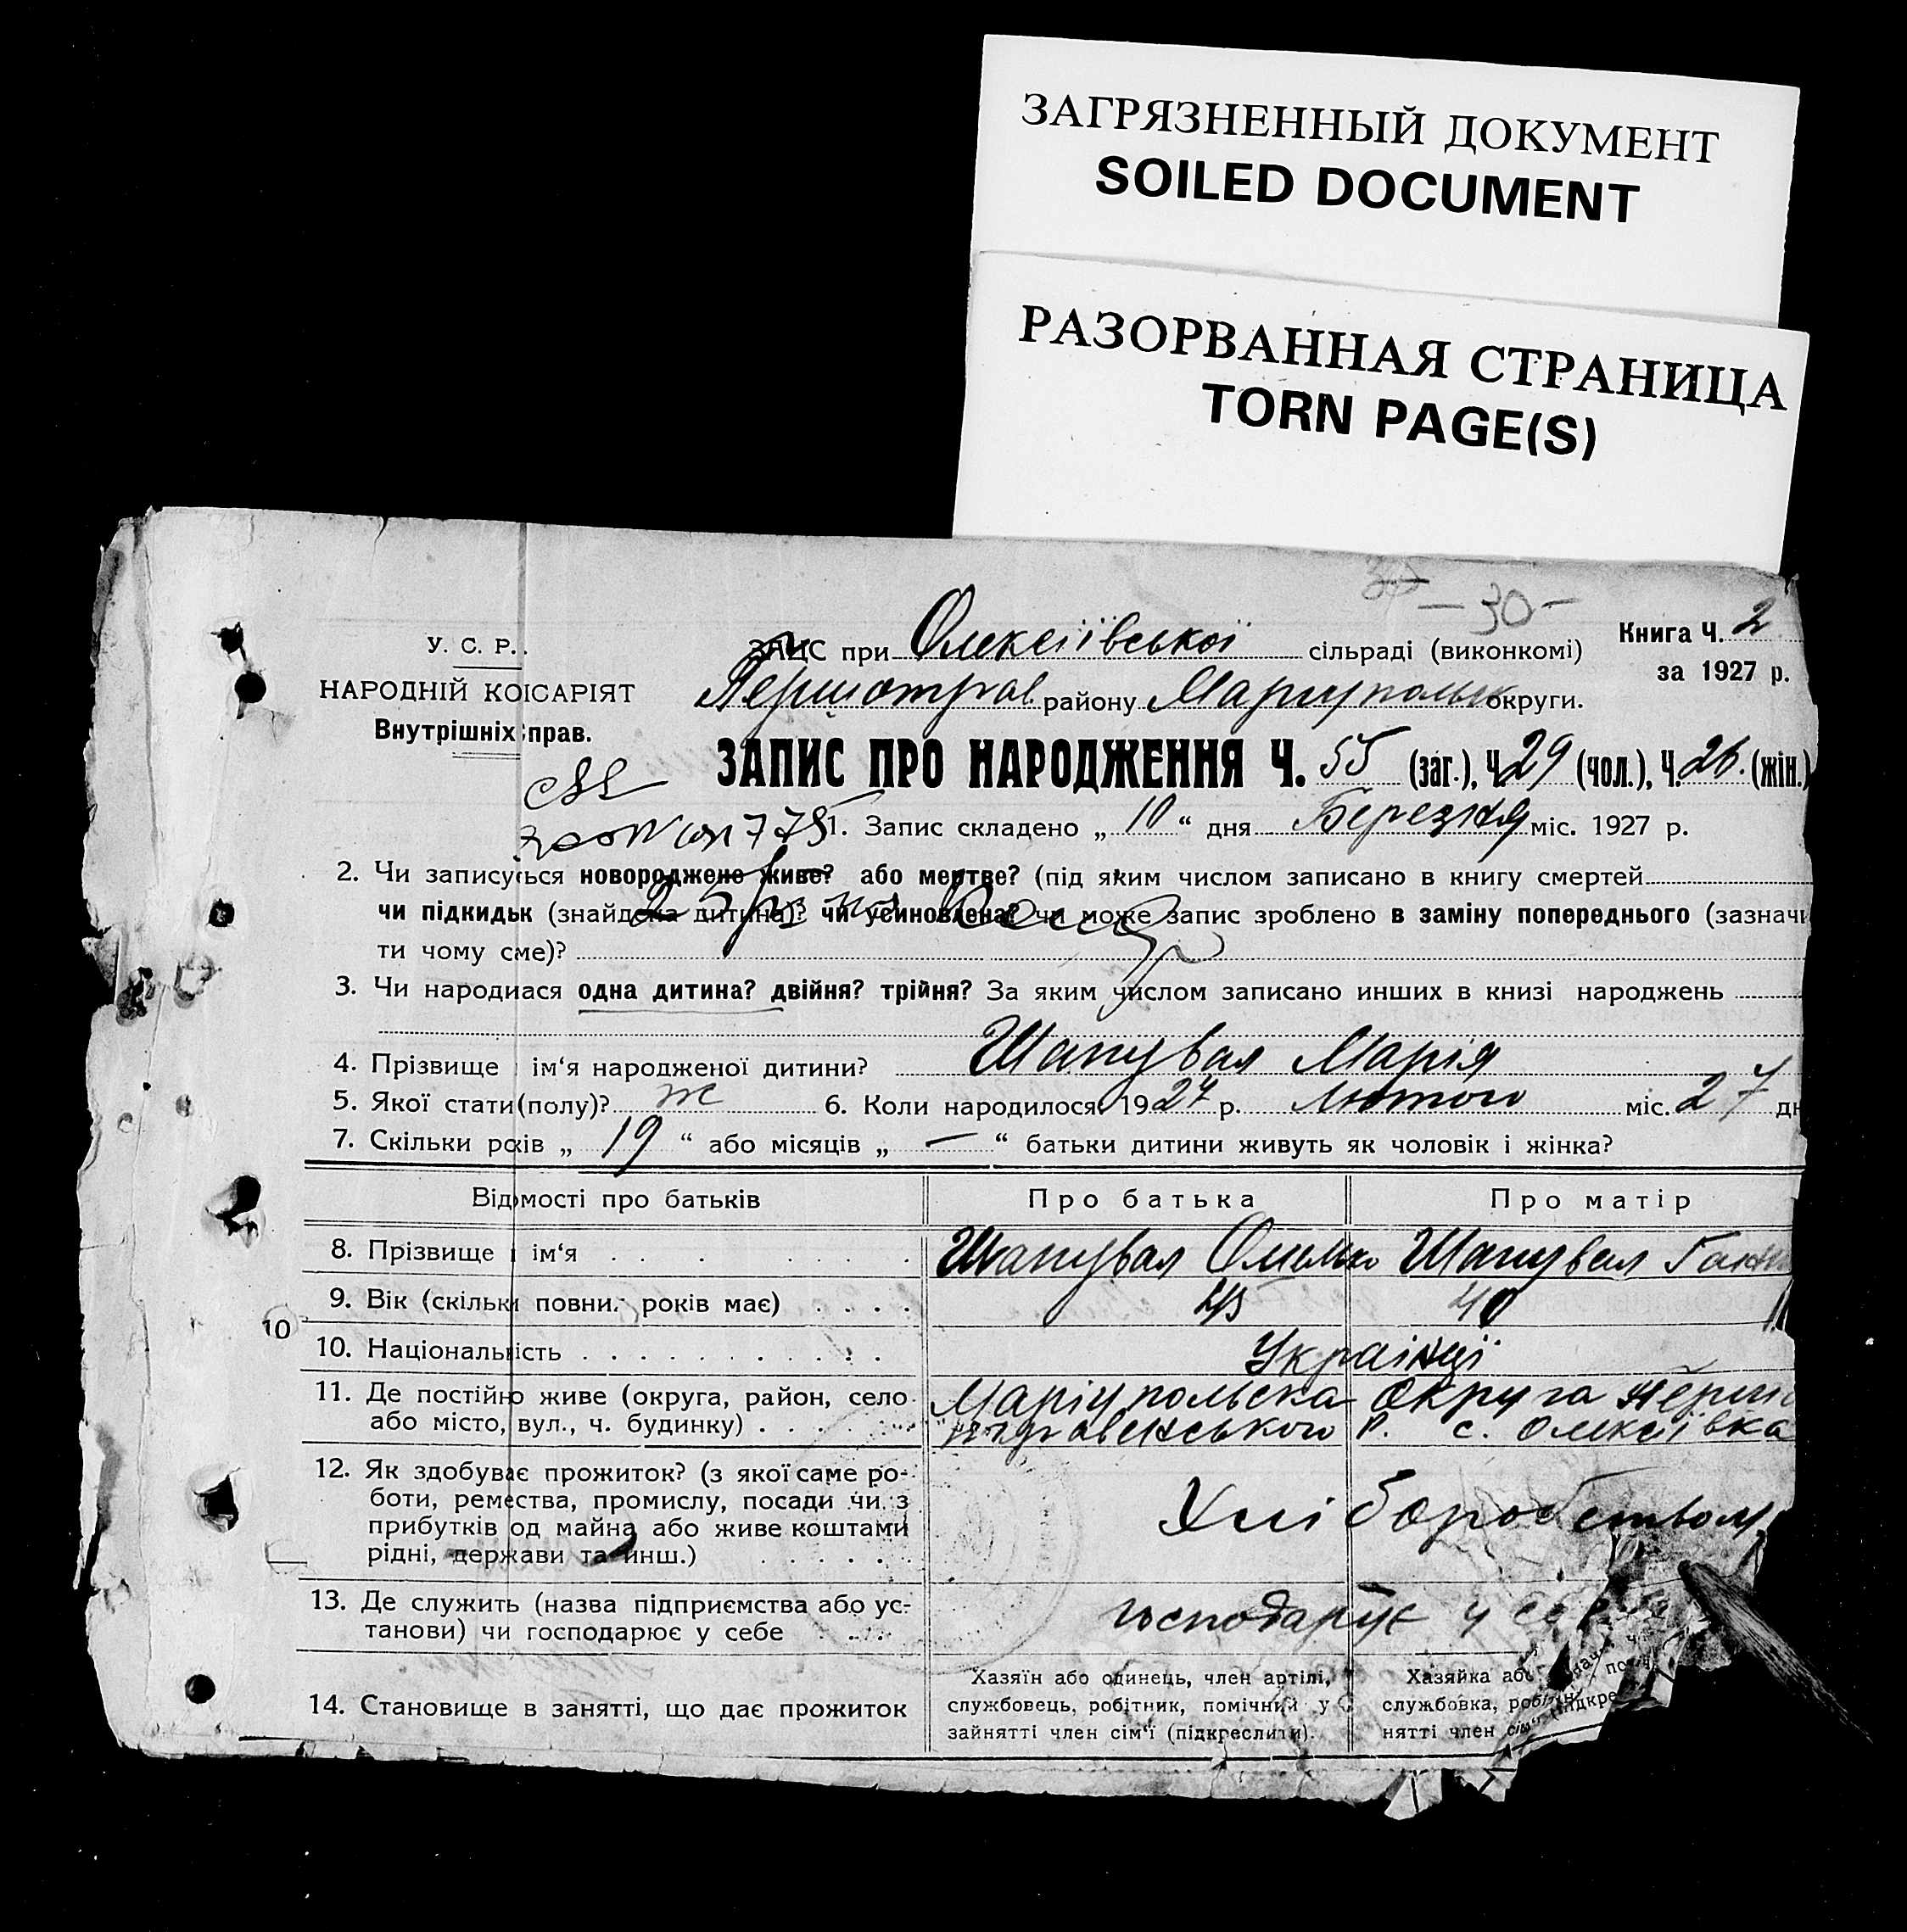 ЗАГРЯЗНЕННЫЙ ДОКУМЕНТ
SOILED DOCUMENT
РАЗОРВАННАЯ СТРАНИЦА
TORN PAGE(S)
— 30 —
У. С. Р.
ЗАПИС при Олексіївської сільраді (виконкомі)
Книга Ч. 2
за 1927 р.
НАРОДНІЙ КОІСАРІЯТ
Першотрав. району Маріупольськ округи.
Внутрішніх справ.
ЗАПИС ПРО НАРОДЖЕННЯ Ч. 55 (заг.), Ч. 29 (чол.), Ч. 26. (жін.)
1. Запис складено „ 10 “ дня Березня міс. 1927 р.
2. Чи записується новороджене живе? або мертве? (під яким числом записано в книгу смертей
чи підкидьк (знайдена дитина)? чи усиновлена? чи може запис зроблено в заміну попереднього (зазначи
ти чому сме)?
3. Чи народиася одна дитина? двійня? трійня? За яким числом записано инших в книзі народжень
4. Прізвище і ім‘я народженої дитини? Шапувал Марія
5. Якої стати (полу)? ж 6. Коли народилося 1927 р. Лютого міс. 27 дн
7. Скільки років „ 19 “ або місяців „ — “ батьки дитини живуть як чоловік і жінка?
Відмості про батьків Про батька Про матір
8. Прізвище і ім‘я Шапувал Шапувал Ганн
9. Вік (скільки повних років має) 45 40
10
10. Національність Українці
11. Де постійно живе (округа, район, село Маріупольска округа Перш
або місто, вул., ч. будинку) р. с. Олексіївка
12. Як здобуває прожиток? (з якої саме ро-
боти, ремества, промислу, посади чи з
прибутків од майна або живе коштами
рідні, держави та инш.) Хліборобством
13. Де служить (назва підприємства або ус-
танови) чи господарює у себе господарує у себе
14. Становище в занятті, що дає прожиток
Хазяїн або одинець, член артілі,
службовець, робітник, помічний у
зайнятті член сім‘ї (підкреслити).
Хазяйка або
службовка, робітни
нятті член сім‘ї підкре